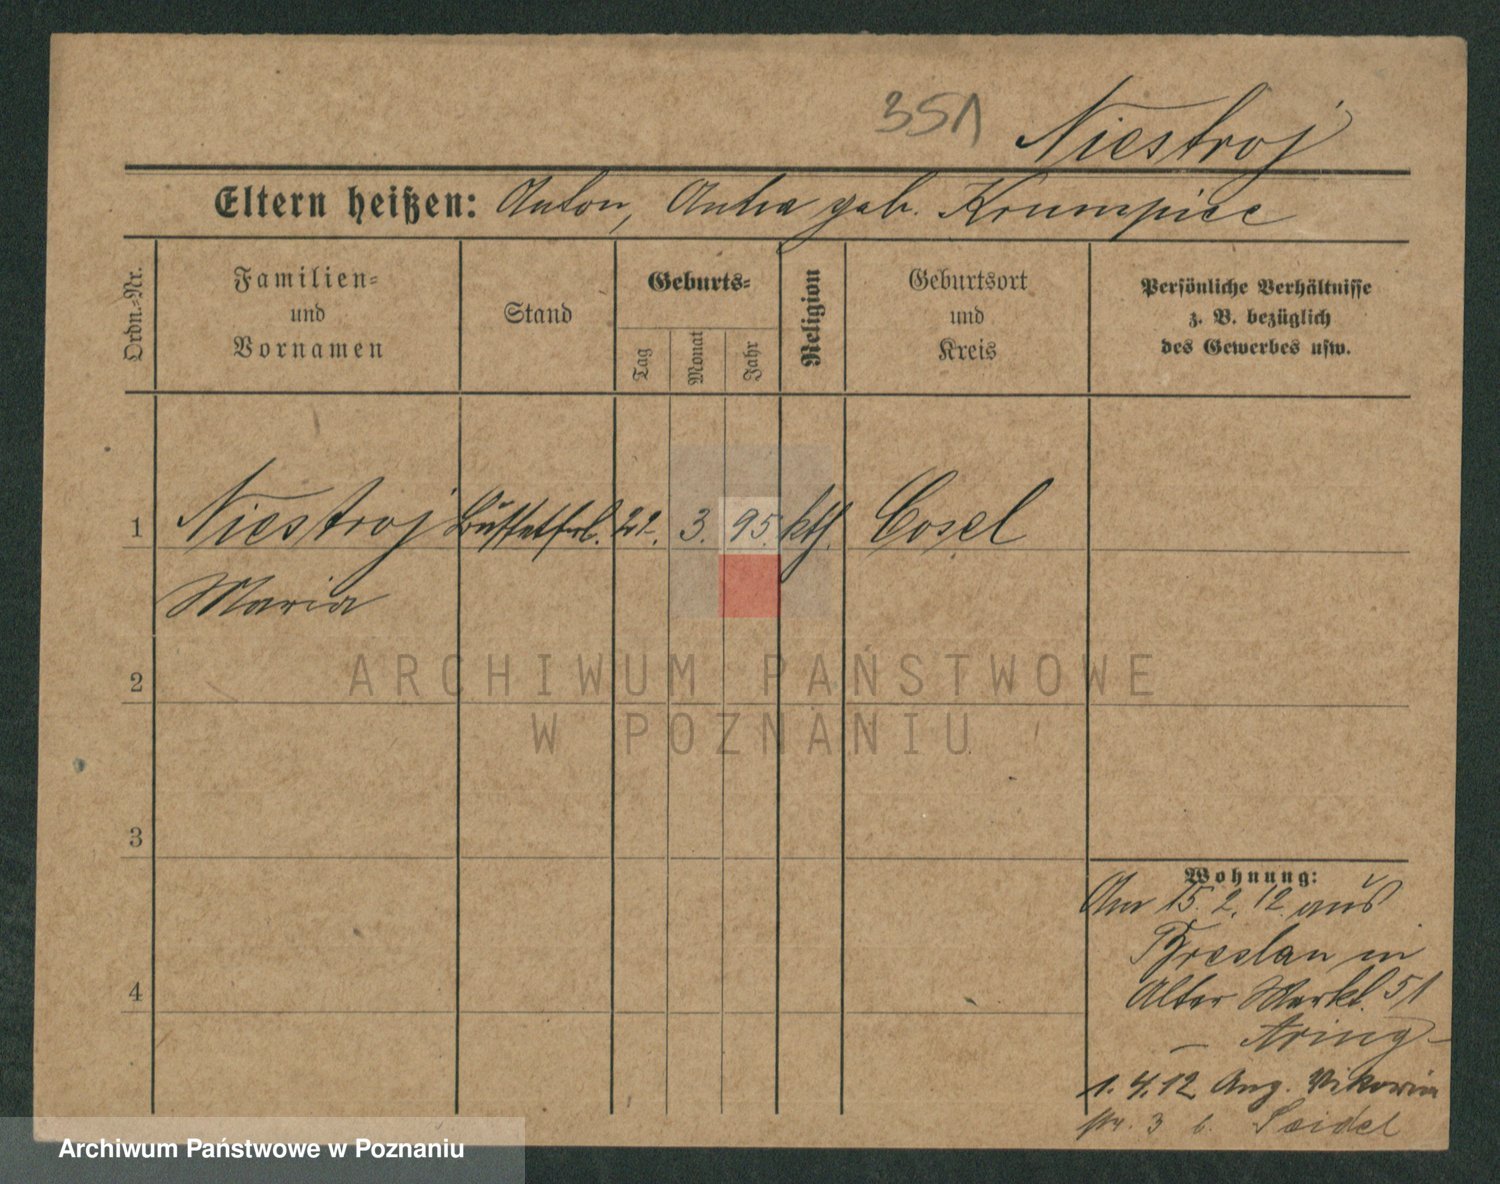 351 Niestroj
Eltern heißen: Anton, geb. Krumpiec
Ordn.-Nr.
Familien-
und
Vornamen
Stand
Geburts-
Tag
Monat
Jahr
Religion
Geburtsort
und
Kreis
Persönliche Verhältnisse
z. B. bezüglich
des Gewerbes usw.
1 Niestroj Büffetfrl. 22. 3. 95. kth. Cosel
Maria
2
ARCHIWUM PAŃSTWOWE
W POZNANIU
3
4
Wohnung:
15. 2. 12. aus
Breslau in
Alter Markt 51
– Aring –
1. 4. 12 Aug. Viktoria
str. 3 b. Seidel
Archiwum Państwowe w Poznaniu